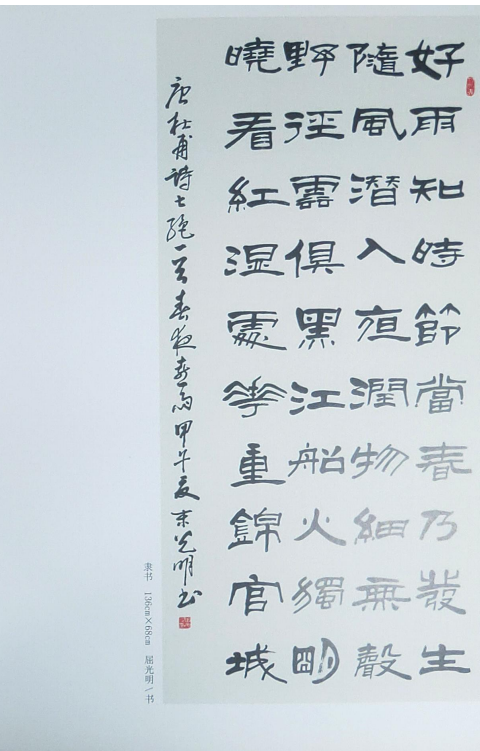 好雨知時節當春乃發生
隨風潛入夜潤物細無聲
野徑雲俱黑江船火獨明
曉看紅湿處華重錦官城
唐杜甫詩七絕一首春夜喜雨甲午夏末光明书
隶书 136cm×68cm 屈光明/书